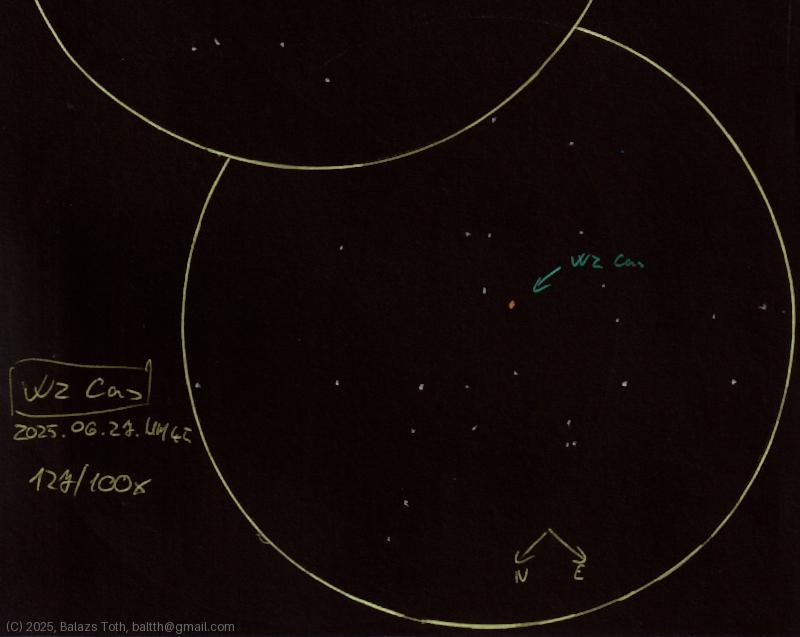 WZ Cas
WZ Cas
2025.06.27.
127/100x
N E
(C) 2025, Balazs Toth, baltth@gmail.com